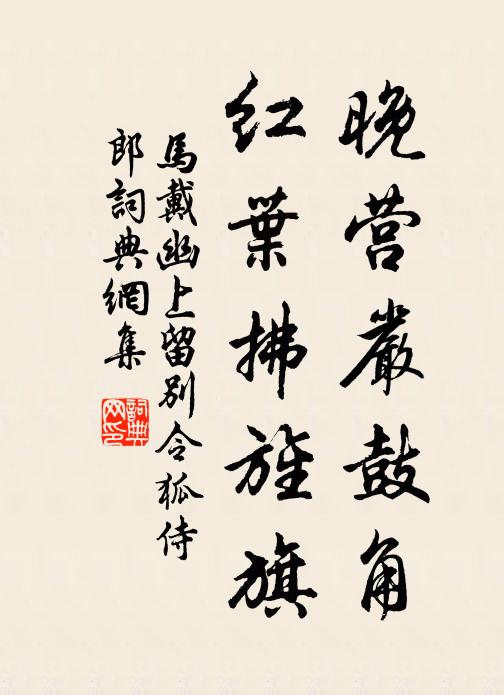 晚营嚴鼓角
红葉拂旌旗
馬戴幽上留別令狐侍
郎詞典網集
詞典
网印